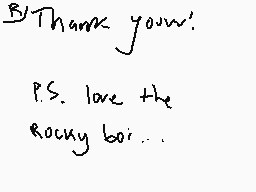 R/ Thank youuu!
P.S. love the
Rocky boi...